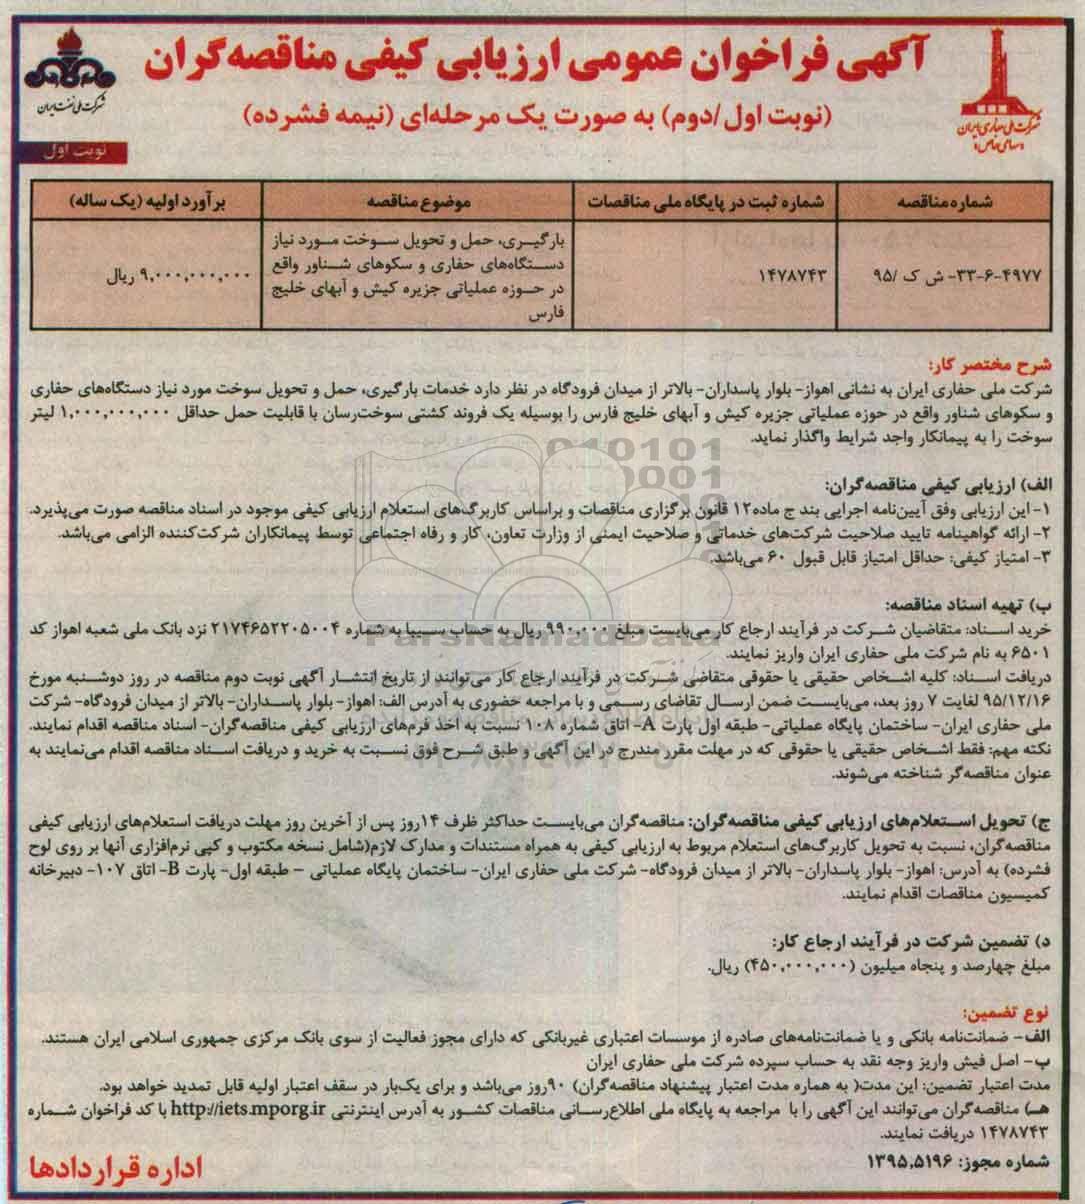 آگهی فراخوان عمومی ارزیابی کیفی مناقصه‌گران
(نوبت اول/دوم) به صورت یک مرحله‌ای (نیمه فشرده)
شرکت ملی نفت ایران
شرکت ملی حفاری ایران
(سهامی خاص)
نوبت اول
شماره مناقصه
شماره ثبت در پایگاه ملی مناقصات
موضوع مناقصه
برآورد اولیه (یک ساله)
۳۳-۶-۴۹۷۷- ش ک /۹۵
۱۴۷۸۷۴۳
بارگیری، حمل و تحویل سوخت مورد نیاز
دستگاه‌های حفاری و سکوهای شناور واقع
در حوزه عملیاتی جزیره کیش و آبهای خلیج
فارس
۹,۰۰۰,۰۰۰,۰۰۰ ریال
شرح مختصر کار:
شرکت ملی حفاری ایران به نشانی اهواز- بلوار پاسداران- بالاتر از میدان فرودگاه در نظر دارد خدمات بارگیری، حمل و تحویل سوخت مورد نیاز دستگاه‌های حفاری
و سکوهای شناور واقع در حوزه عملیاتی جزیره کیش و آبهای خلیج فارس را بوسیله یک فروند کشتی سوخت‌رسان با قابلیت حمل حداقل ۱,۰۰۰,۰۰۰,۰۰۰ لیتر
سوخت را به پیمانکار واجد شرایط واگذار نماید.
الف) ارزیابی کیفی مناقصه‌گران:
۱- این ارزیابی وفق آیین‌نامه اجرایی بند ج ماده۱۲ قانون برگزاری مناقصات و براساس کاربرگ‌های استعلام ارزیابی کیفی موجود در اسناد مناقصه صورت می‌پذیرد.
۲- ارائه گواهینامه تایید صلاحیت شرکت‌های خدماتی و صلاحیت ایمنی از وزارت تعاون، کار و رفاه اجتماعی توسط پیمانکاران شرکت‌کننده الزامی می‌باشد.
۳- امتیاز کیفی: حداقل امتیاز قابل قبول ۶۰ می‌باشد.
ب) تهیه اسناد مناقصه:
خرید اسناد: متقاضیان شرکت در فرآیند ارجاع کار می‌بایست مبلغ ۹۹۰,۰۰۰ ریال به حساب سیبا به شماره ۲۱۷۴۶۵۲۲۰۵۰۰۴ نزد بانک ملی شعبه اهواز کد
۶۵۰۱ به نام شرکت ملی حفاری ایران واریز نمایند.
دریافت اسناد: کلیه اشخاص حقیقی یا حقوقی متقاضی شرکت در فرآیند ارجاع کار می‌توانند از تاریخ انتشار آگهی نوبت دوم مناقصه در روز دوشنبه مورخ
۹۵/۱۲/۱۶ لغایت ۷ روز بعد، می‌بایست ضمن ارسال تقاضای رسمی و با مراجعه حضوری به آدرس الف: اهواز- بلوار پاسداران- بالاتر از میدان فرودگاه- شرکت
ملی حفاری ایران- ساختمان پایگاه عملیاتی- طبقه اول پارت A- اتاق شماره ۱۰۸ نسبت به اخذ فرم‌های ارزیابی کیفی مناقصه‌گران- اسناد مناقصه اقدام نمایند.
نکته مهم: فقط اشخاص حقیقی یا حقوقی که در مهلت مقرر مندرج در این آگهی و طبق شرح فوق نسبت به خرید و دریافت اسناد مناقصه اقدام می‌نمایند به
عنوان مناقصه‌گر شناخته می‌شوند.
ج) تحویل استعلام‌های ارزیابی کیفی مناقصه‌گران: مناقصه‌گران می‌بایست حداکثر ظرف ۱۴روز پس از آخرین روز مهلت دریافت استعلام‌های ارزیابی کیفی
مناقصه‌گران، نسبت به تحویل کاربرگ‌های استعلام مربوط به ارزیابی کیفی به همراه مستندات و مدارک لازم(شامل نسخه مکتوب و کپی نرم‌افزاری آنها بر روی لوح
فشرده) به آدرس: اهواز- بلوار پاسداران- بالاتر از میدان فرودگاه- شرکت ملی حفاری ایران- ساختمان پایگاه عملیاتی – طبقه اول- پارت B- اتاق ۱۰۷- دبیرخانه
کمیسیون مناقصات اقدام نمایند.
د) تضمین شرکت در فرآیند ارجاع کار:
مبلغ چهارصد و پنجاه میلیون (۴۵۰,۰۰۰,۰۰۰) ریال.
نوع تضمین:
الف- ضمانت‌نامه بانکی و یا ضمانت‌نامه‌های صادره از موسسات اعتباری غیربانکی که دارای مجوز فعالیت از سوی بانک مرکزی جمهوری اسلامی ایران هستند.
ب- اصل فیش واریز وجه نقد به حساب سپرده شرکت ملی حفاری ایران
مدت اعتبار تضمین: این مدت( به هماره مدت اعتبار پیشنهاد مناقصه‌گران) ۹۰روز می‌باشد و برای یک‌بار در سقف اعتبار اولیه قابل تمدید خواهد بود.
هـ) مناقصه‌گران می‌توانند این آگهی را با مراجعه به پایگاه ملی اطلاع‌رسانی مناقصات کشور به آدرس اینترنتی http://iets.mporg.ir با کد فراخوان شماره
۱۴۷۸۷۴۳ دریافت نمایند.
شماره مجوز: ۱۳۹۵,۵۱۹۶
اداره قراردادها
ParsNamadData